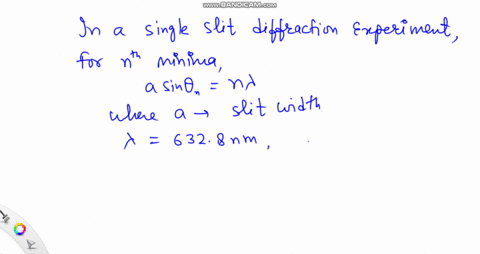 WWW.BANDICAM.COM
In a single slit diffraction experiment,
for nth minima,
a sinθn = nλ
where a → slit width
λ = 632.8 nm,